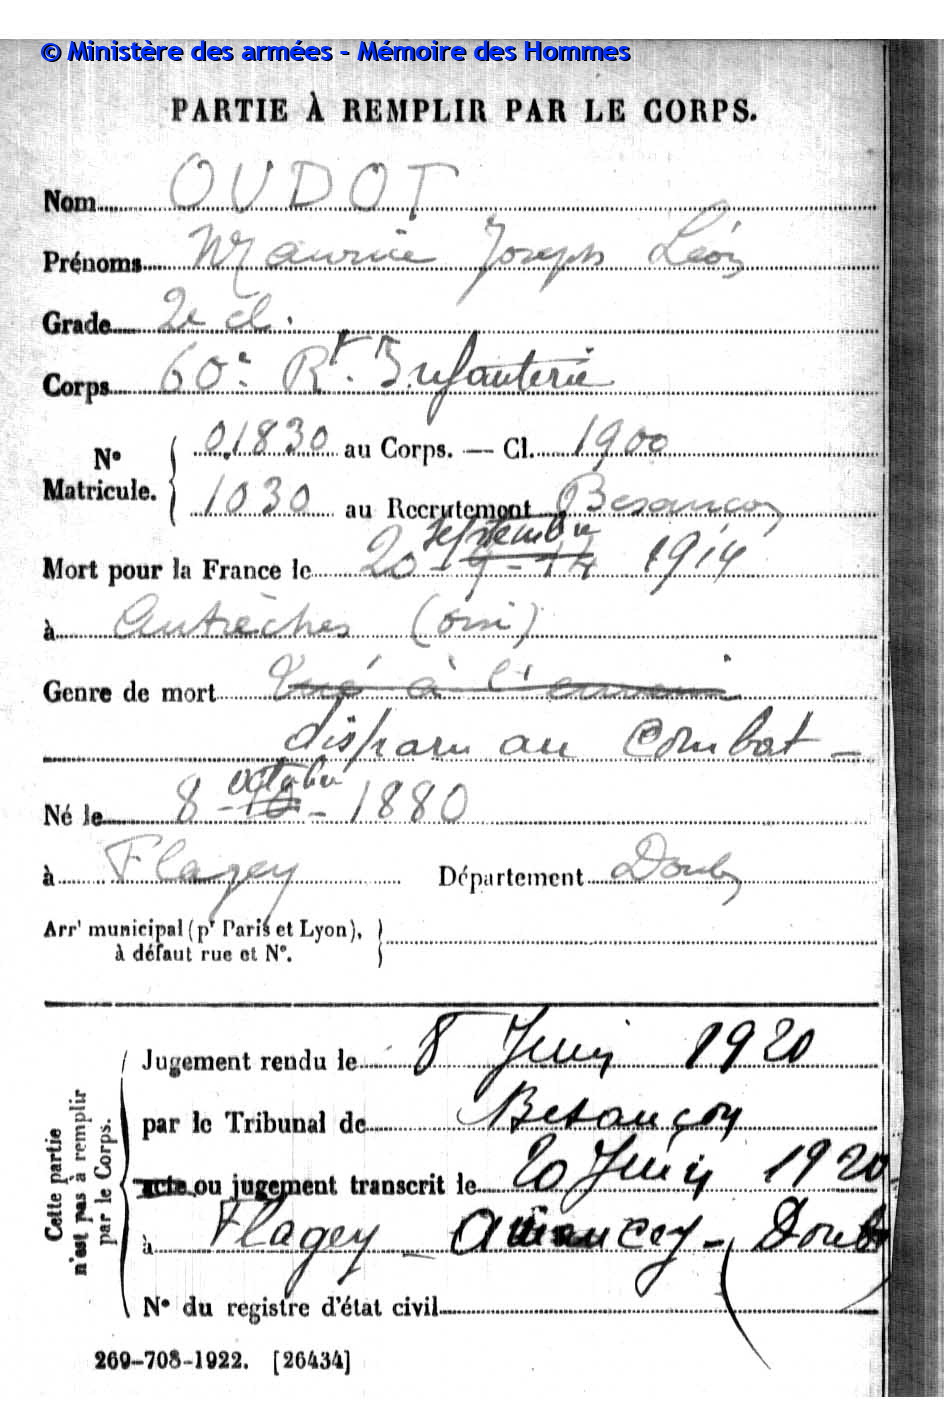 © Ministère des armées - Mémoire des Hommes
PARTIE À REMPLIR PAR LE CORPS.
Nom OUDOT
Prénoms Maurice Joseph Léon
Grade 2e cl.
Corps 60e Rt. Infanterie
N° Matricule. { 01830 au Corps. — Cl. 1900
1030 au Recrutement Besançon
septembre
Mort pour la France le 20 - 9 - 14 1914
à Autrèches (Oise)
Genre de mort Tué à l'ennemi
disparu au combat -
octobre
Né le 8 - 10 - 1880
à Flagey Département Doubs
Arrt municipal (pr Paris et Lyon),
à défaut rue et N°.
Cette partie
n'est pas à remplir
par le Corps.
Jugement rendu le 8 Juin 1920
par le Tribunal de Besançon
acte ou jugement transcrit le 20 Juin 1920
à Flagey - Amancey - (Doubs)
N° du registre d'état civil
269-708-1922. [26434]